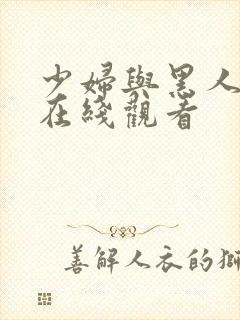 少婦與黑人
在綫觀看
善解人衣的獅